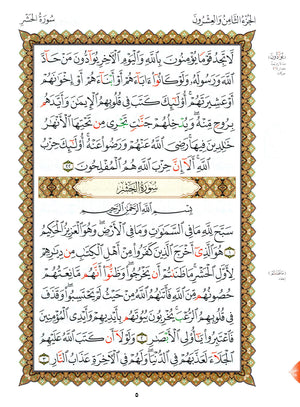 الجزء الثامن والعشرون
سورة الحشر
لَّا تَجِدُ قَوْمًا يُؤْمِنُونَ بِٱللَّهِ وَٱلْيَوْمِ ٱلْءَاخِرِ يُوَآدُّونَ مَنْ حَآدَّ
ٱللَّهَ وَرَسُولَهُۥ وَلَوْ كَانُوٓا۟ ءَابَآءَهُمْ أَوْ أَبْنَآءَهُمْ أَوْ إِخْوَٰنَهُمْ
أَوْ عَشِيرَتَهُمْ ۚ أُو۟لَٰٓئِكَ كَتَبَ فِى قُلُوبِهِمُ ٱلْإِيمَٰنَ وَأَيَّدَهُم
بِرُوحٍ مِّنْهُ ۖ وَيُدْخِلُهُمْ جَنَّٰتٍ تَجْرِى مِن تَحْتِهَا ٱلْأَنْهَٰرُ
خَٰلِدِينَ فِيهَا ۚ رَضِىَ ٱللَّهُ عَنْهُمْ وَرَضُوا۟ عَنْهُ ۚ أُو۟لَٰٓئِكَ حِزْبُ
ٱللَّهِ ۚ أَلَآ إِنَّ حِزْبَ ٱللَّهِ هُمُ ٱلْمُفْلِحُونَ ٢٢
سورة الحشر
بِسْمِ ٱللَّهِ ٱلرَّحْمَٰنِ ٱلرَّحِيمِ
سَبَّحَ لِلَّهِ مَا فِى ٱلسَّمَٰوَٰتِ وَمَا فِى ٱلْأَرْضِ ۖ وَهُوَ ٱلْعَزِيزُ ٱلْحَكِيمُ
١ هُوَ ٱلَّذِىٓ أَخْرَجَ ٱلَّذِينَ كَفَرُوا۟ مِنْ أَهْلِ ٱلْكِتَٰبِ مِن دِيَٰرِهِمْ
لِأَوَّلِ ٱلْحَشْرِ ۚ مَا ظَنَنتُمْ أَن يَخْرُجُوا۟ ۖ وَظَنُّوٓا۟ أَنَّهُم مَّانِعَتُهُمْ
حُصُونُهُم مِّنَ ٱللَّهِ فَأَتَىٰهُمُ ٱللَّهُ مِنْ حَيْثُ لَمْ يَحْتَسِبُوا۟ ۖ وَقَذَفَ
فِى قُلُوبِهِمُ ٱلرُّعْبَ ۚ يُخْرِبُونَ بُيُوتَهُم بِأَيْدِيهِمْ وَأَيْدِى ٱلْمُؤْمِنِينَ
فَٱعْتَبِرُوا۟ يَٰٓأُو۟لِى ٱلْأَبْصَٰرِ ٢ وَلَوْلَآ أَن كَتَبَ ٱللَّهُ عَلَيْهِمُ
ٱلْجَلَآءَ لَعَذَّبَهُمْ فِى ٱلدُّنْيَا ۖ وَلَهُمْ فِى ٱلْءَاخِرَةِ عَذَابُ ٱلنَّارِ ٣
٥